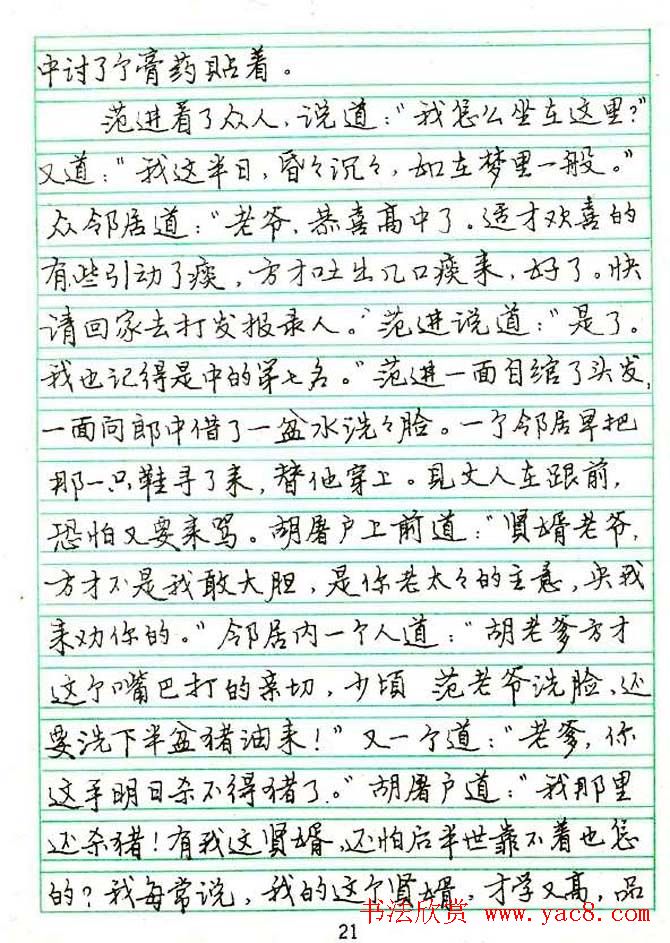 中讨了个膏药贴着。
范进看了众人,说道:“我怎么坐在这里?”
又道:“我这半日,昏々沉々,如在梦里一般。”
众邻居道:“老爷,恭喜高中了。适才欢喜的
有些引动了痰,方才吐出几口痰来,好了。快
请回家去打发报录人。”范进说道:“是了。
我也记得是中的第七名。”范进一面自绾了头发,
一面问郎中借了一盆水洗々脸。一个邻居早把
那一只鞋寻了来,替他穿上。见丈人在跟前,
恐怕又要来骂。胡屠户上前道:“贤婿老爷,
方才不是我敢大胆,是你老太々的主意,央我
来劝你的。”邻居内一个人道:“胡老爹方才
这个嘴巴打的亲切,少顷 范老爷洗脸,还
要洗下半盆猪油来!”又一个道:“老爹,你
这手明日杀不得猪了。”胡屠户道:“我那里
还杀猪!有我这贤婿,还怕后半世靠不着也怎
的?我每常说,我的这个贤婿,才学又高,品
21
书法欣赏 www.yac8.com